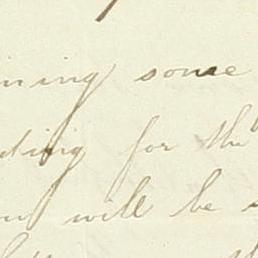 ning some
ding for the
will be